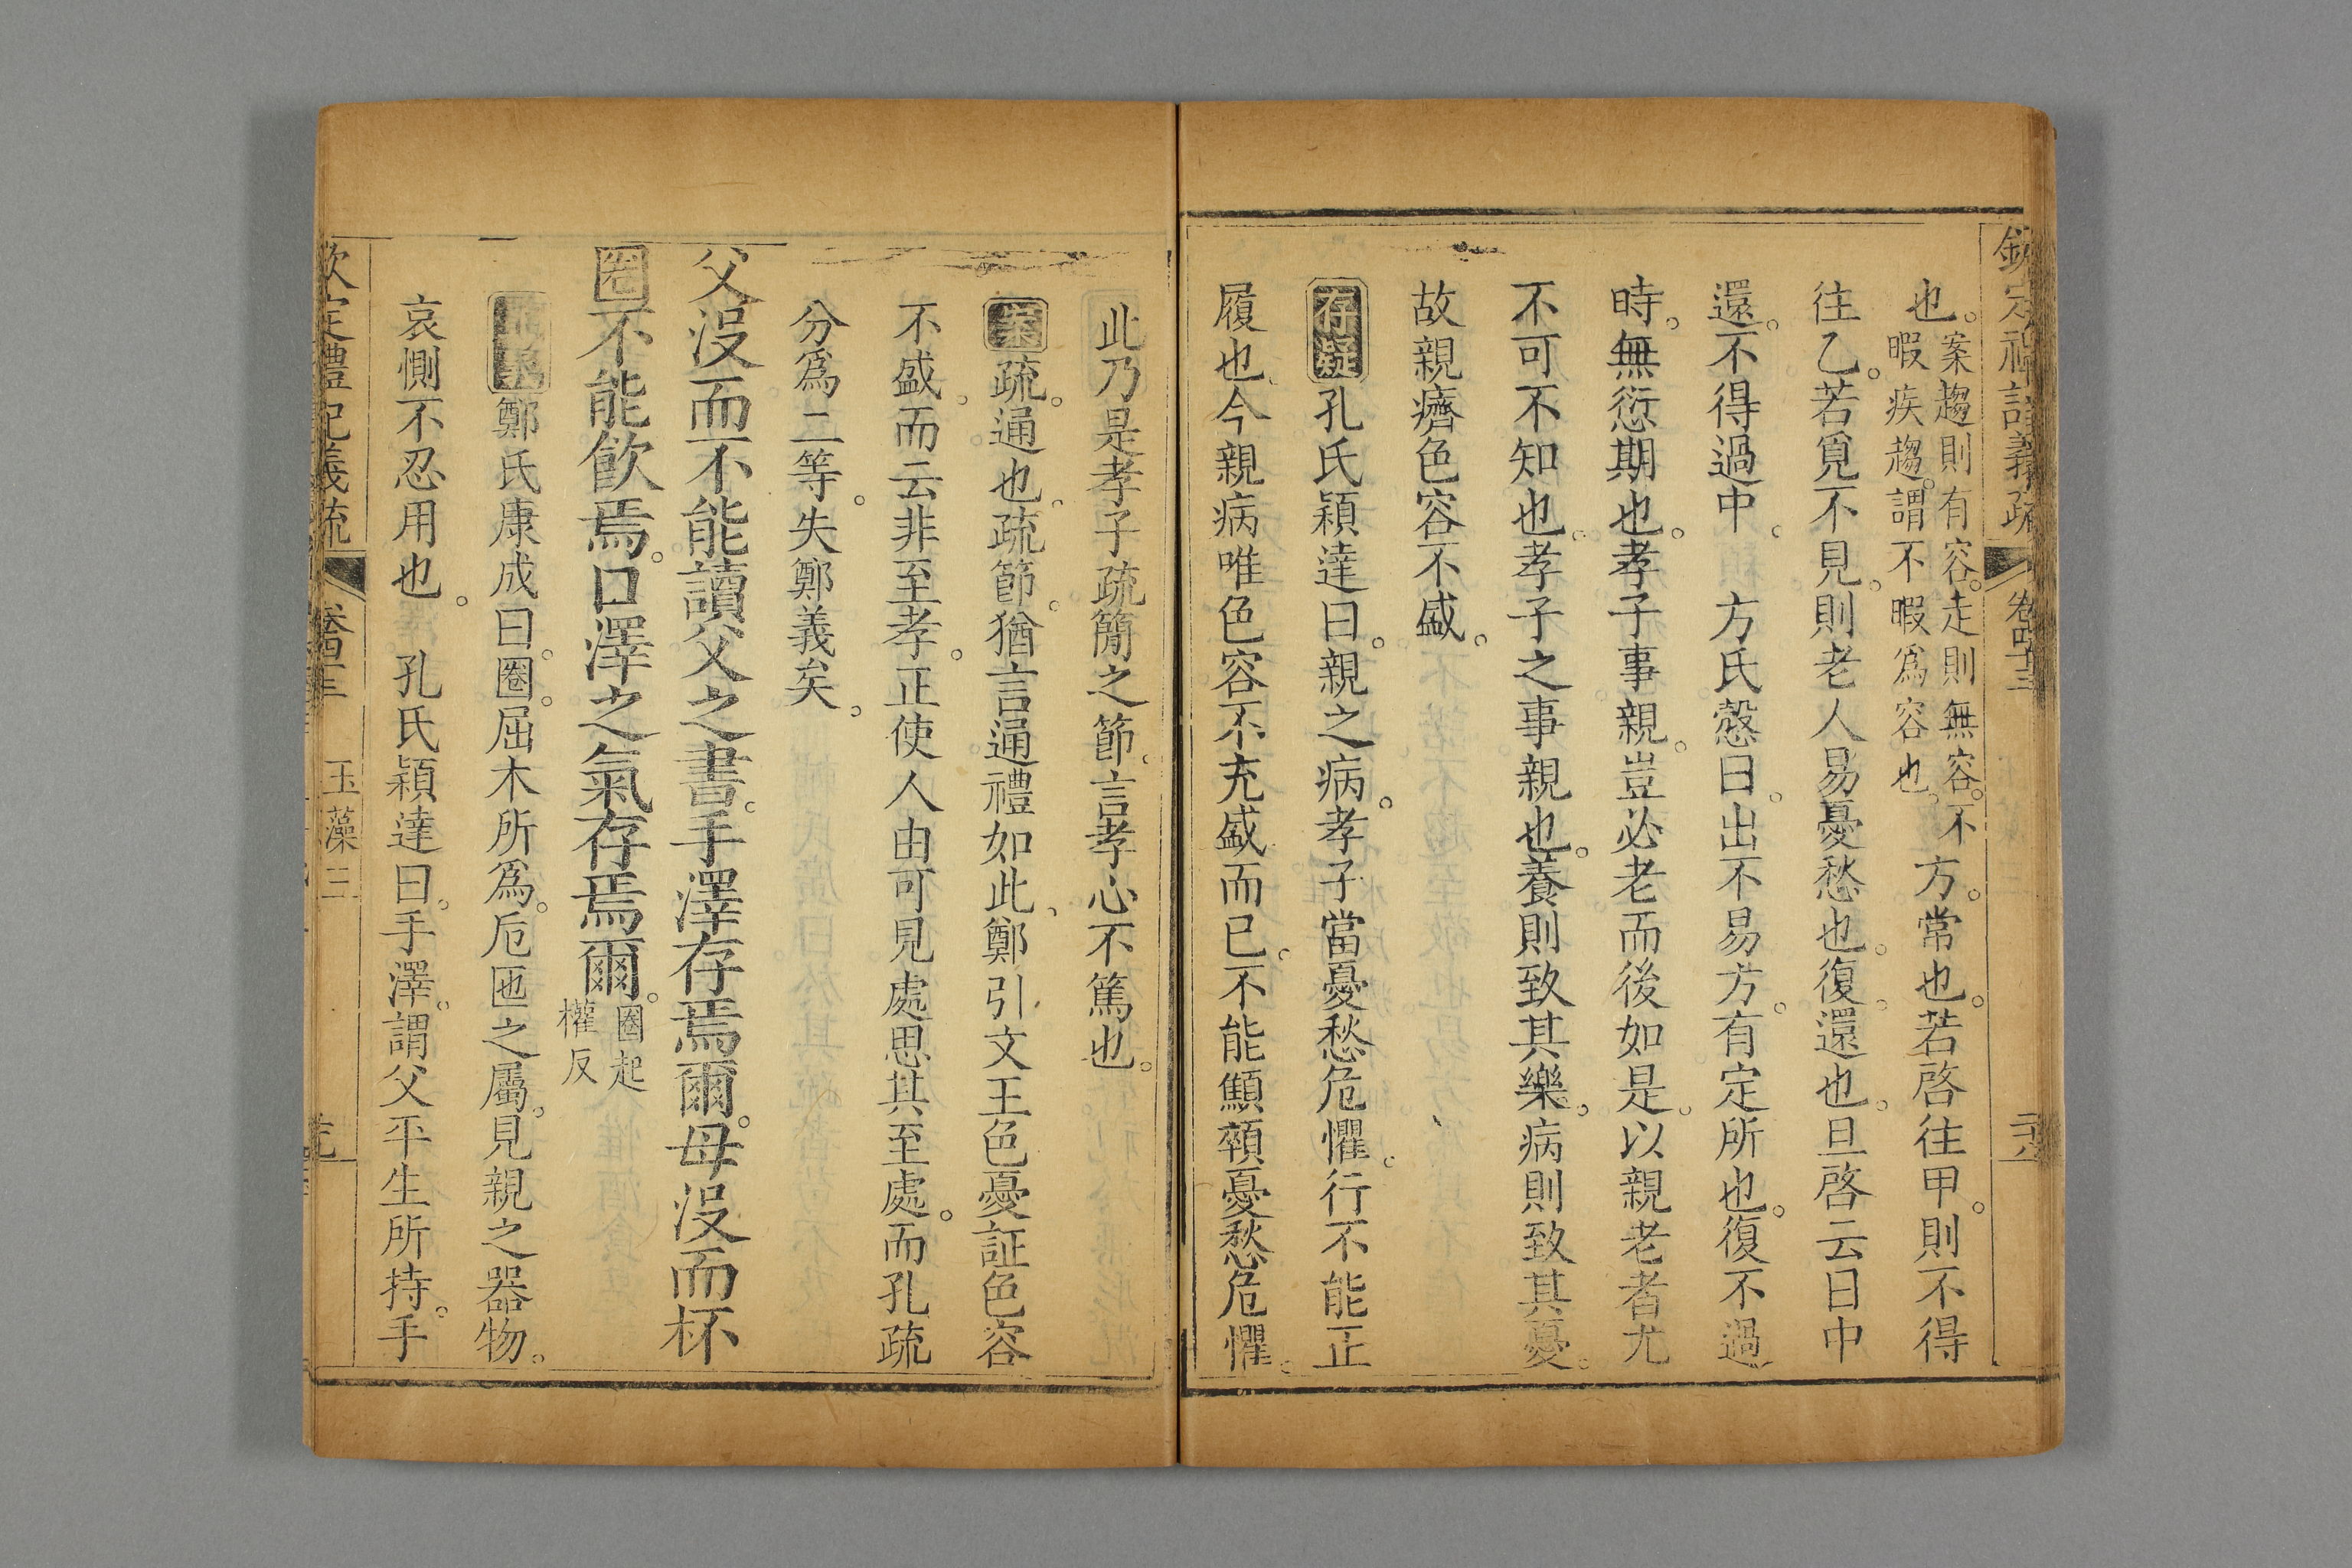 欽定禮記義疏 卷四十三 二八
也。案趨則有容。走則無容。不暇疾趨。謂不暇爲容也。方。常也。若啓往甲。則不得
往乙。若覓不見。則老人易憂愁也。復。還也。旦啓云日中
還。不得過中。 方氏慤曰。出不易方。有定所也。復不過
時。無愆期也。孝子事親。豈必老而後如是。以親老者尤
不可不知也。孝子之事親也。養則致其樂。病則致其憂。
故親癠色容不盛。
存疑孔氏穎達曰。親之病。孝子當憂愁危懼。行不能正
履也。今親病唯色容不充盛而已。不能顦顇憂愁危懼。
此乃是孝子疏簡之節。言孝心不篤也。
案疏。通也。疏節。猶言通禮如此。鄭引文王色憂証色容
不盛。而云非至孝。正使人由可見處思其至處。而孔疏
分爲二等。失鄭義矣。
父沒而不能讀父之書。手澤存焉爾。母沒而杯
圈不能飲焉。口澤之氣存焉爾。圈起權反
鄭氏康成曰。圈。屈木所爲。卮匜之屬。見親之器物。
哀惻不忍用也。 孔氏穎達曰。手澤。謂父平生所持。手
欽定禮記義疏 卷四十三 玉藻三